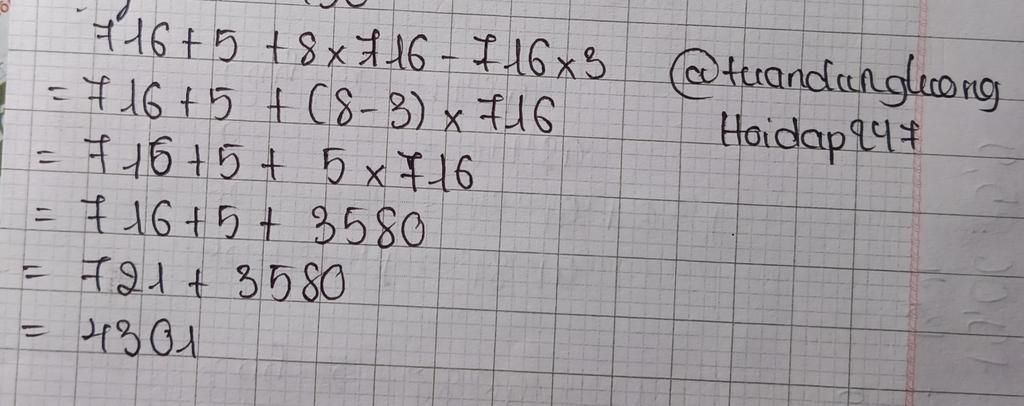 716 + 5 + 8 x 716 - 716 x 3
= 716 + 5 + (8 - 3) x 716
= 716 + 5 + 5 x 716
= 716 + 5 + 3580
= 721 + 3580
= 4301
@tuandungluong
Hoidap247